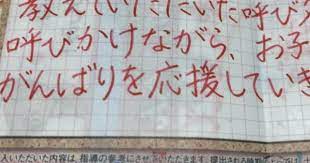 教えていただいた呼び
呼びかけながら、お子
がんばりを応援していき
入いただいた内容は、指導の参考にさせていただきます。提出される時